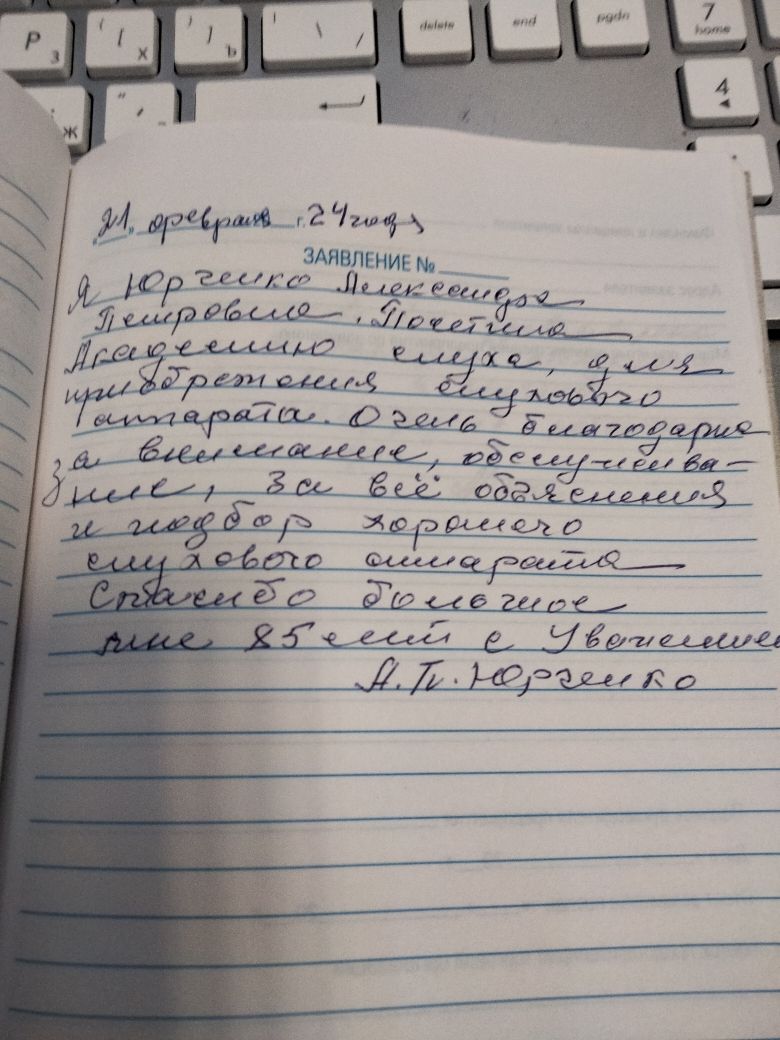 P
З
{
[
Х
}
]
Ъ
|
\
/
delete
end
pgdn
7
home
4
"
'
Ж
"21" февраля г. 24 года
ЗАЯВЛЕНИЕ №
Я Юрченко Александра
Петровна. Посетила
Академию слуха, для
приобрежения слухового
аппарата. Очень благодарна
за внимание, обслужива-
ние, За всё объяснения
и подбор хорошего
слухового аппарата
Спасибо большое
мне 85 лет с Уважением
А. П. Юрченко